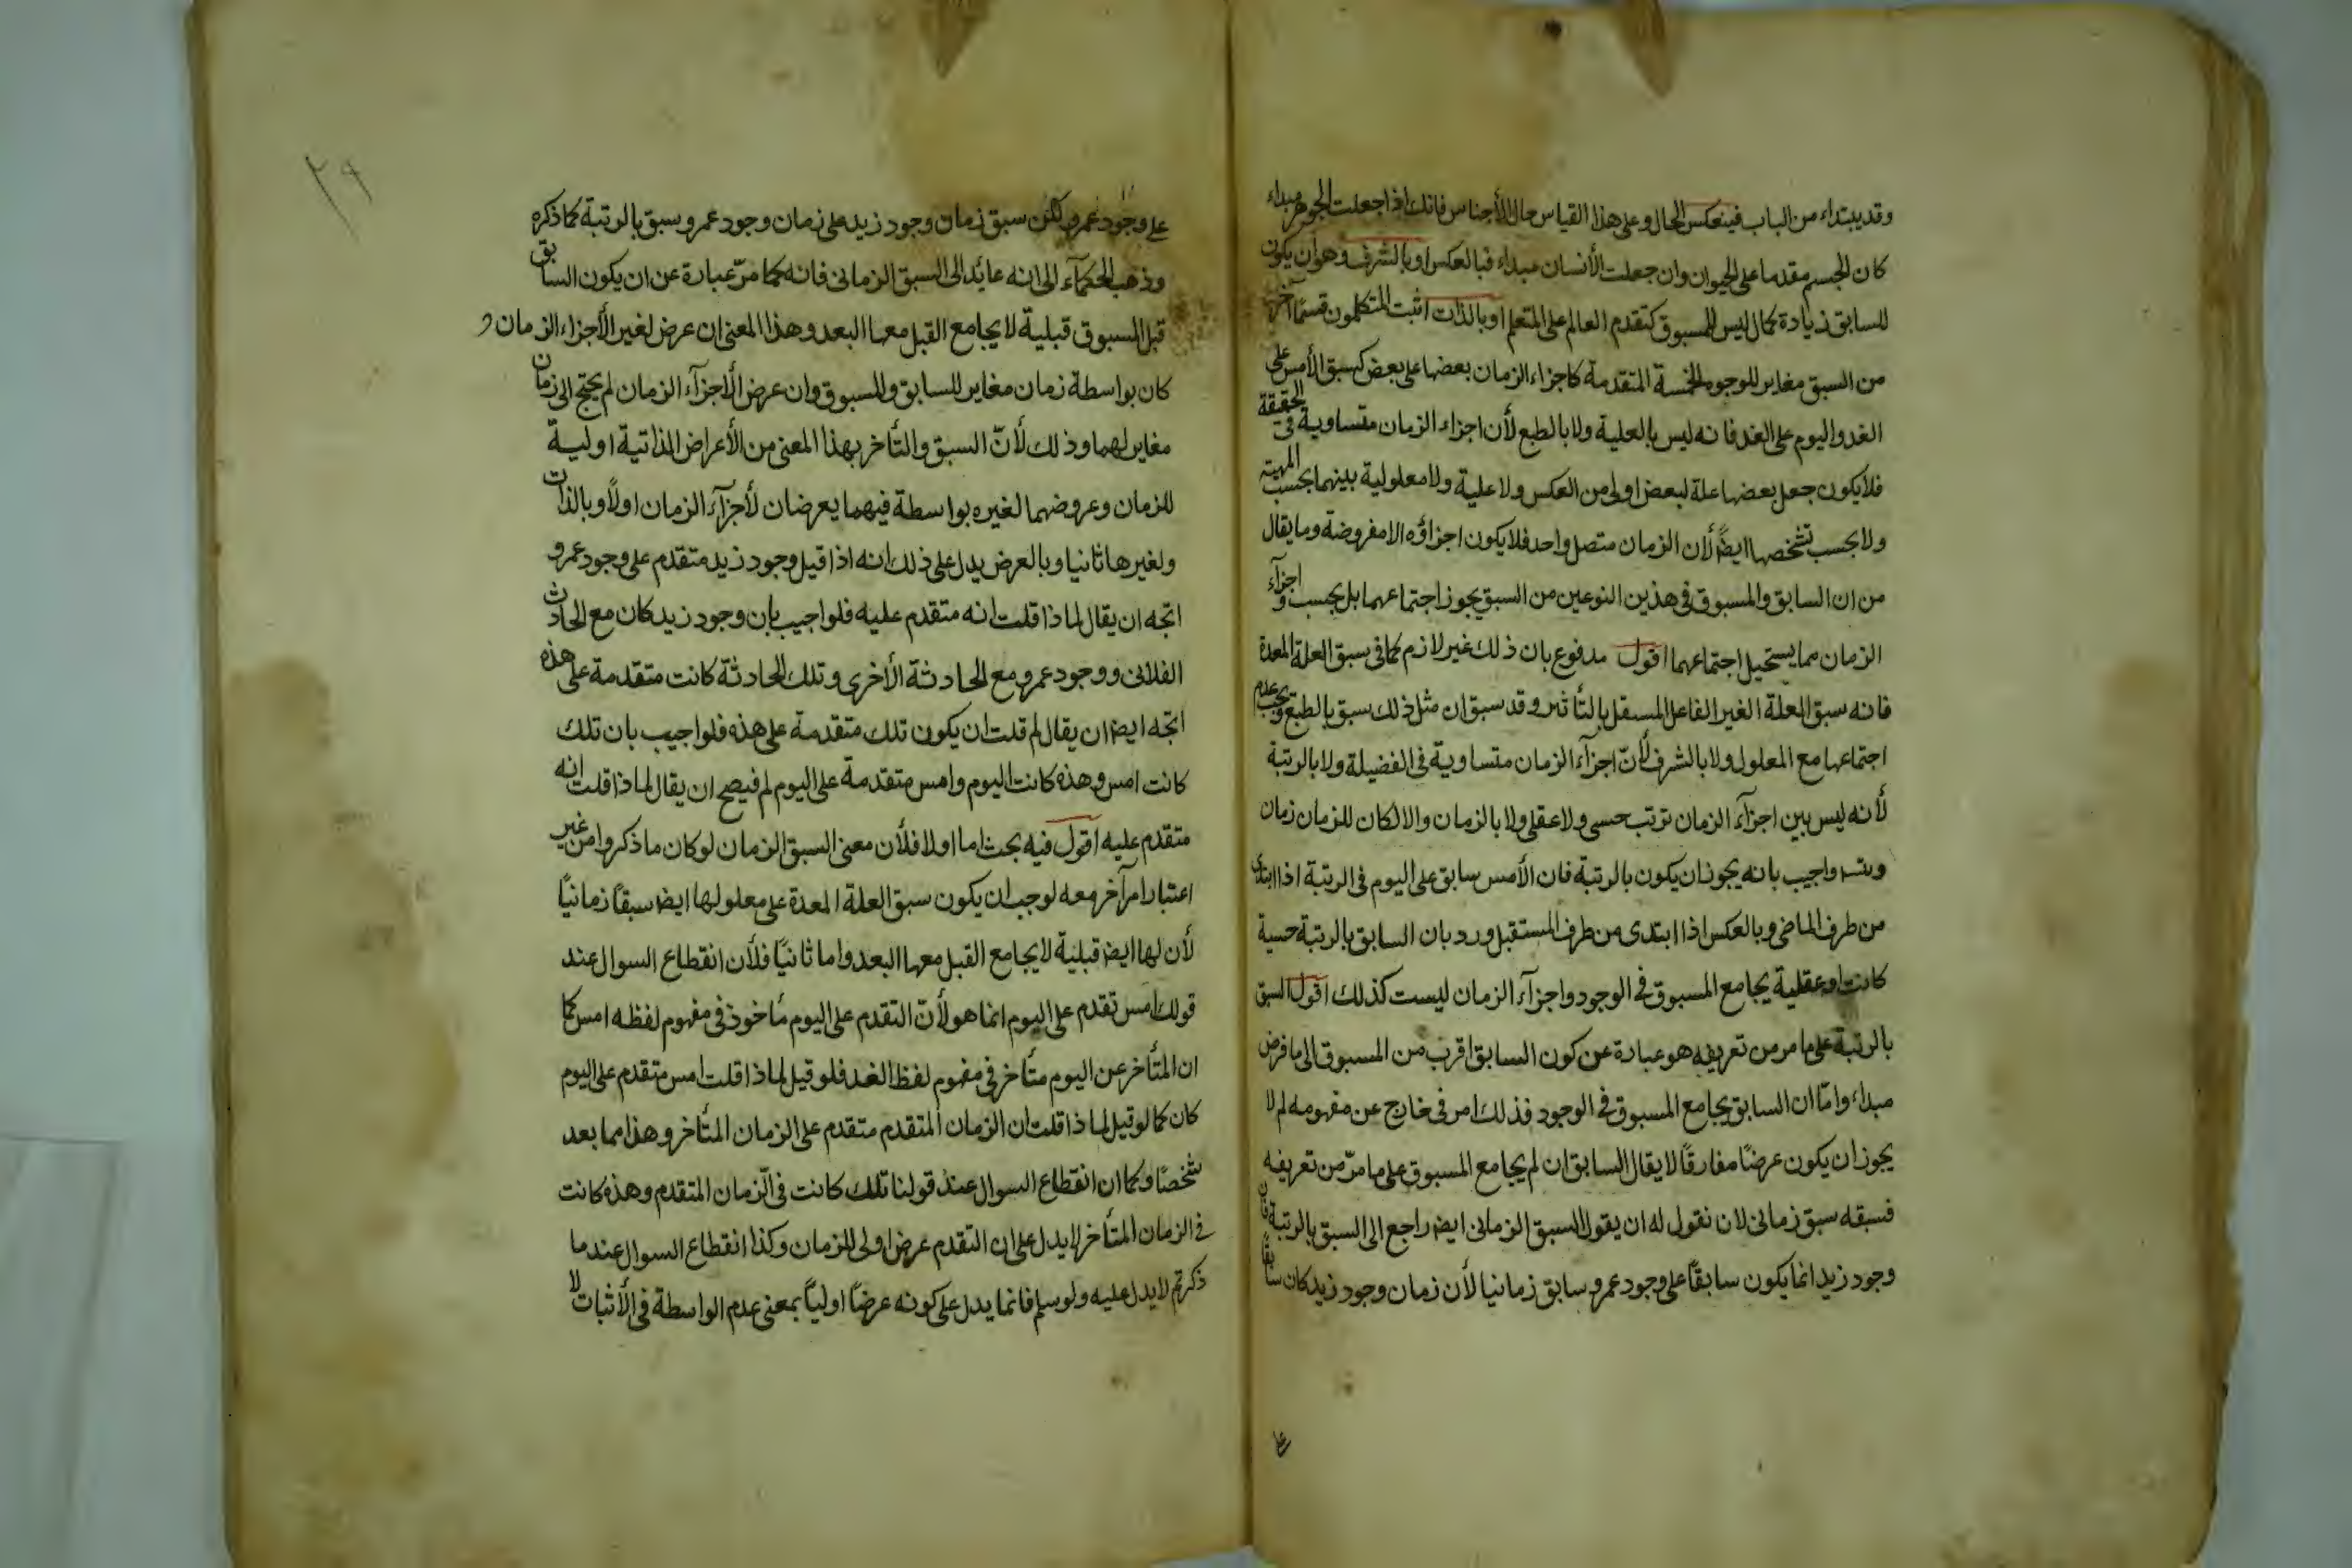 وقد يبتداء من الباب فينعكس الحال وعلى هذا القياس حال الأجناس فانك اذا جعلت الجوهر مبداء
كان الجسم مقدما على الحيوان وان جعلت الأنسان مبداء فبالعكس او بالشرف وهو ان يكون
للسابق زيادة كمال ليس للمسبوق كتقدم العالم على المتعلم او بالذات اثبت المتكلمون قسمًا آخر
من السبق مغاير للوجوه الخمسة المتقدمة كاجزاء الزمان بعضها على بعض كسبق الأمس على
الغد واليوم على الغد فانه ليس بالعلية ولا بالطبع لأن اجزاء الزمان متساوية في الحقيقة
فلا يكون جعل بعضها علة لبعض اولى من العكس ولا علية ولا معلولية بينهما بحسب المهية
ولا بحسب تشخصها ايضً لأن الزمان متصل واحد فلا يكون اجزاؤه الا مفروضة وما يقال
من ان السابق والمسبوق في هذين النوعين من السبق يجوز اجتماعهما بل يجب واجزآء
الزمان مما يستحيل اجتماعهما اقول مدفوع بان ذلك غير لازم كما في سبق العلة المعدة
فانه سبق العلة الغير الفاعل المستقل بالتأثير وقد سبق ان مثل ذلك سبق بالطبع ويجب عدم
اجتماعها مع المعلول ولا بالشرف لأنّ اجزآء الزمان متساوية في الفضيلة ولا بالرتبة
لأنه ليس بين اجزآء الزمان ترتب حسى ولا عقلى ولا بالزمان والا لكان للزمان زمان
واجيب بانه يجوز ان يكون بالرتبة فان الأمس سابق على اليوم في الرتبة اذا ابتدى
من طرف الماضى وبالعكس اذا ابتدى من طرف المستقبل ورد بان السابق بالرتبة حسية
كانت او عقلية يجامع المسبوق في الوجود واجزآء الزمان ليست كذلك اقول السبق
بالرتبة على ما مر من تعريفه هو عبارة عن كون السابق اقرب من المسبوق الى ما فرض
مبداء وامّا ان السابق يجامع المسبوق في الوجود فذلك امر في خارج عن مفهومه لم لا
يجوز ان يكون عرضًا مفارقًا لا يقال السابق ان لم يجامع المسبوق على ما مرّ من تعريفه
فسبقه سبق زمانى لان نقول له ان يقول السبق الزمانى ايضً راجع الى السبق بالرتبة فان
وجود زيد انما يكون سابقًا على وجود عمرو سابق زمانيا لأن زمان وجود زيد كان سابقًا
على
٢٩
على وجود عمرو لكن سبق زمان وجود زيد على زمان وجود عمرو سبق بالرتبة كما ذكره
وذهب الحكمآء الى انه عائد الى السبق الزمانى فانه كما مرّ عبارة عن ان يكون السابق
قبل المسبوق قبلية لا يجامع القبل معها البعد وهذا المعنى ان عرض لغير الأجزاء الزمان و
كان بواسطة زمان مغاير للسابق والمسبوق وان عرض الأجزآء الزمان لم يحتج الى زمان
مغاير لهما وذلك لأنّ السبق والتأخر بهذا المعنى من الأعراض الذاتية اولية
للزمان وعروضهما لغيره بواسطة فيهما يعرضان لأجزآء الزمان اولًا وبالذات
ولغيرها ثانيا وبالعرض يدل على ذلك انه اذا قيل وجود زيد متقدم على وجود عمرو
اتجه ان يقال لماذا قلت انه متقدم عليه فلو اجيب بان وجود زيد كان مع الحادث
الفلانى ووجود عمرو مع الحادثة الأخرى وتلك الحادثة كانت متقدمة على هذه
اتجه ايضً ان يقال لم قلت ان يكون تلك متقدمة على هذه فلو اجيب بان تلك
كانت امس وهذه كانت اليوم وامس متقدمة على اليوم لم فيصح ان يقال لماذا قلت انه
متقدم عليه اقول فيه بحث اما اولا فلأن معنى السبق الزمان لو كان ما ذكروا من غير
اعتبار امر آخر معه لوجب ان يكون سبق العلة المعدة على معلولها ايضً سبقًا زمانيًا
لأن لها ايضً قبلية لا يجامع القبل معها البعد واما ثانيًا فلأن انقطاع السوال عند
قولك امس تقدم على اليوم انما هو لأنّ التقدم على اليوم مأخوذ في مفهوم لفظه امس كما
ان المتأخر عن اليوم متأخر في مفهوم لفظ الغد فلو قيل لماذا قلت امس متقدم على اليوم
كان كما لو قيل لماذا قلت ان الزمان المتقدم متقدم على الزمان المتأخر وهذا مما بعد
شخصًا وكما ان انقطاع السوال عند قولنا تلك كانت في الزمان المتقدم وهذه كانت
في الزمان المتأخر لا يدل على ان التقدم عرض اولى للزمان وكذا انقطاع السوال عند ما
ذكرتم لا يدل عليه ولو سلم فانما يدل على كونه عرضًا اوليًا بمعنى عدم الواسطة في الأثبات لا